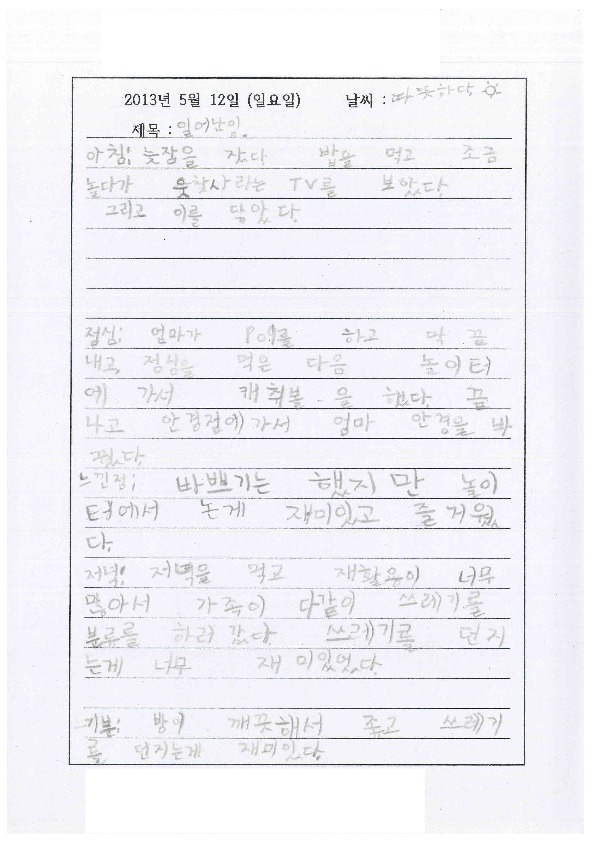 2013년 5월 12일 (일요일) 날씨 : 따뜻하다
제목 : 일어난일.
아침: 늦잠을 잤다 밥을 먹고 조금
놀다가 웃찾사라는 TV를 보았다.
그리고 이를 닦았다.
점심: 엄마가 를 하고 막 끝
내고, 점심을 먹은 다음 놀이터
에 가서 캐취볼 을 했다. 끝
나고 안경점에 가서 엄마 안경을 바
꿨다.
느낀점: 바쁘기는 했지만 놀이
터에서 논게 재미있고 즐거웠
다.
저녁: 저녁을 먹고 재활용이 너무
많아서 가족이 다같이 쓰레기를
분류를 하러 갔다. 쓰레기를 던지
는게 너무 재미있었다.
기분: 방이 깨끗해서 좋고 쓰레기
를 던지는게 재미있다.